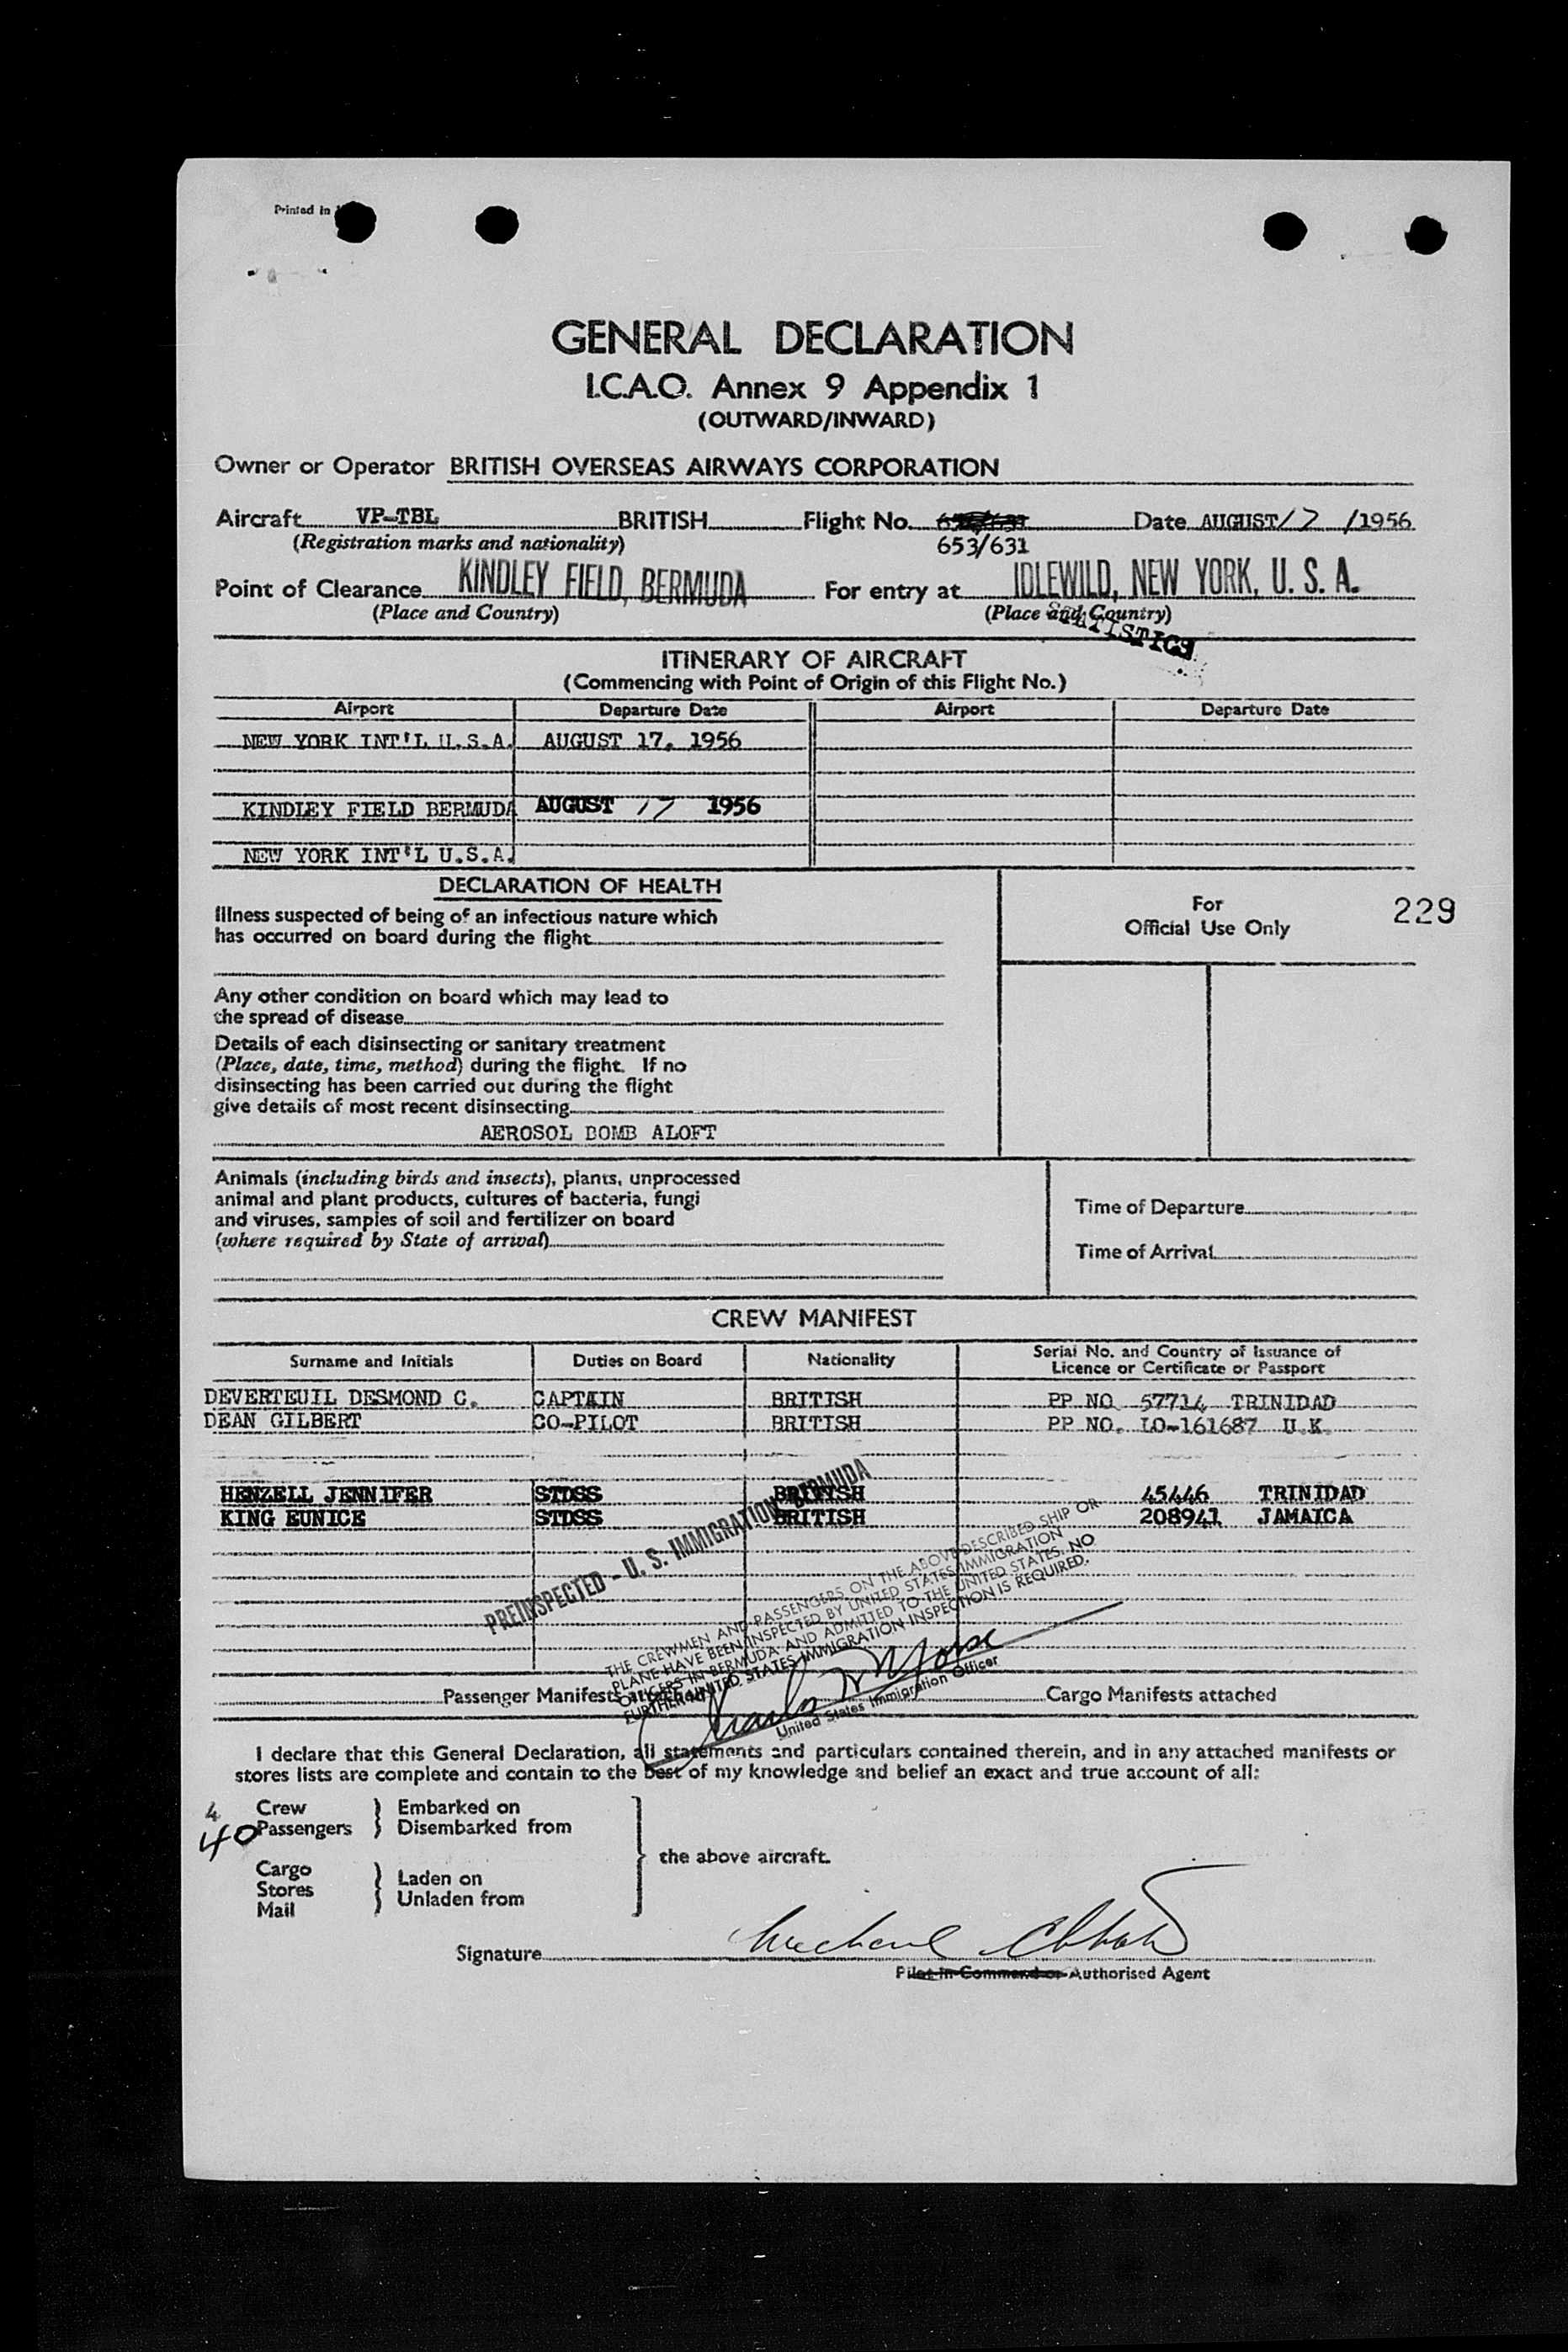 Printed in
GENERAL DECLARATION
I.C.A.O. Annex 9 Appendix 1
(OUTWARD/INWARD)
Owner or Operator BRITISH OVERSEAS AIRWAYS CORPORATION
Aircraft VP-TBL BRITISH Flight No. Date AUGUST 17 /1956
(Registration marks and nationality) 653/631
Point of Clearance KINDLEY FIELD, BERMUDA For entry at IDLEWILD, NEW YORK, U. S. A.
(Place and Country) (Place and Country)
STATISTICS
ITINERARY OF AIRCRAFT
(Commencing with Point of Origin of this Flight No.)
Airport Departure Date Airport Departure Date
NEW YORK INT'L U.S.A. AUGUST 17, 1956
KINDLEY FIELD BERMUDA AUGUST 17 1956
NEW YORK INT'L U.S.A.
DECLARATION OF HEALTH
Illness suspected of being of an infectious nature which
has occurred on board during the flight
For
Official Use Only
229
Any other condition on board which may lead to
the spread of disease
Details of each disinsecting or sanitary treatment
(Place, date, time, method) during the flight. If no
disinsecting has been carried out during the flight
give details of most recent disinsecting
AEROSOL BOMB ALOFT
Animals (including birds and insects), plants, unprocessed
animal and plant products, cultures of bacteria, fungi
and viruses, samples of soil and fertilizer on board
(where required by State of arrival)
Time of Departure
Time of Arrival
CREW MANIFEST
Surname and Initials Duties on Board Nationality Serial No. and Country of Issuance of
Licence or Certificate or Passport
DEVERTEUIL DESMOND C. CAPTAIN BRITISH PP NO 57714 TRINIDAD
DEAN GILBERT CO-PILOT BRITISH PP NO. LO-161687 U.K.
HENZELL JENNIFER STDSS BRITISH 45446 TRINIDAD
KING EUNICE STDSS BRITISH 208941 JAMAICA
PREINSPECTED - U. S. IMMIGRATION BERMUDA
THE CREWMEN AND PASSENGERS ON THE ABOVE DESCRIBED SHIP OR
PLANE HAVE BEEN INSPECTED BY UNITED STATES IMMIGRATION
OFFICERS IN BERMUDA AND ADMITTED TO THE UNITED STATES. NO
FURTHER UNITED STATES IMMIGRATION INSPECTION IS REQUIRED.
United States Immigration Officer
Passenger Manifests attached Cargo Manifests attached
I declare that this General Declaration, all statements and particulars contained therein, and in any attached manifests or
stores lists are complete and contain to the best of my knowledge and belief an exact and true account of all:
4 Crew Embarked on
40 Passengers Disembarked from
the above aircraft.
Cargo Laden on
Stores Unladen from
Mail
Signature
Pilot in Command or Authorised Agent